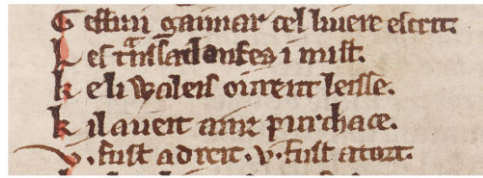 Geffrai gaimar cel liuere escrit.
Les t͛nssadanfes i mist.
ke li Waleis ourent leisse.
kil aueit ainz purchace.
v. fust a dreit. v. fust a tort.